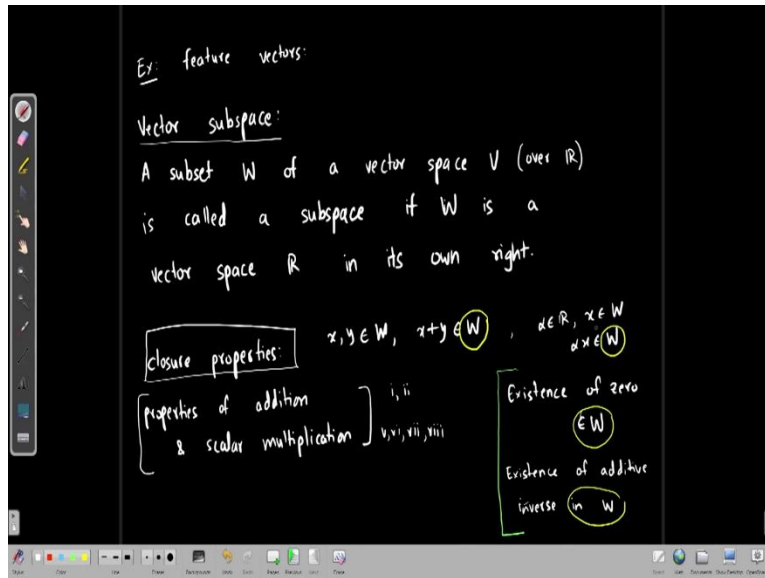 Ex: feature vectors:
Vector subspace:
A subset W of a vector space V (over ℝ)
is called a subspace if W is a
vector space ℝ in its own right.
closure properties: x, y ∈ W, x+y ∈ W , α∈ℝ, x∈W
αx∈W
properties of addition i, ii
& scalar multiplication v,vi,vii,viii
Existence of zero
∈ W
Existence of additive
inverse in W